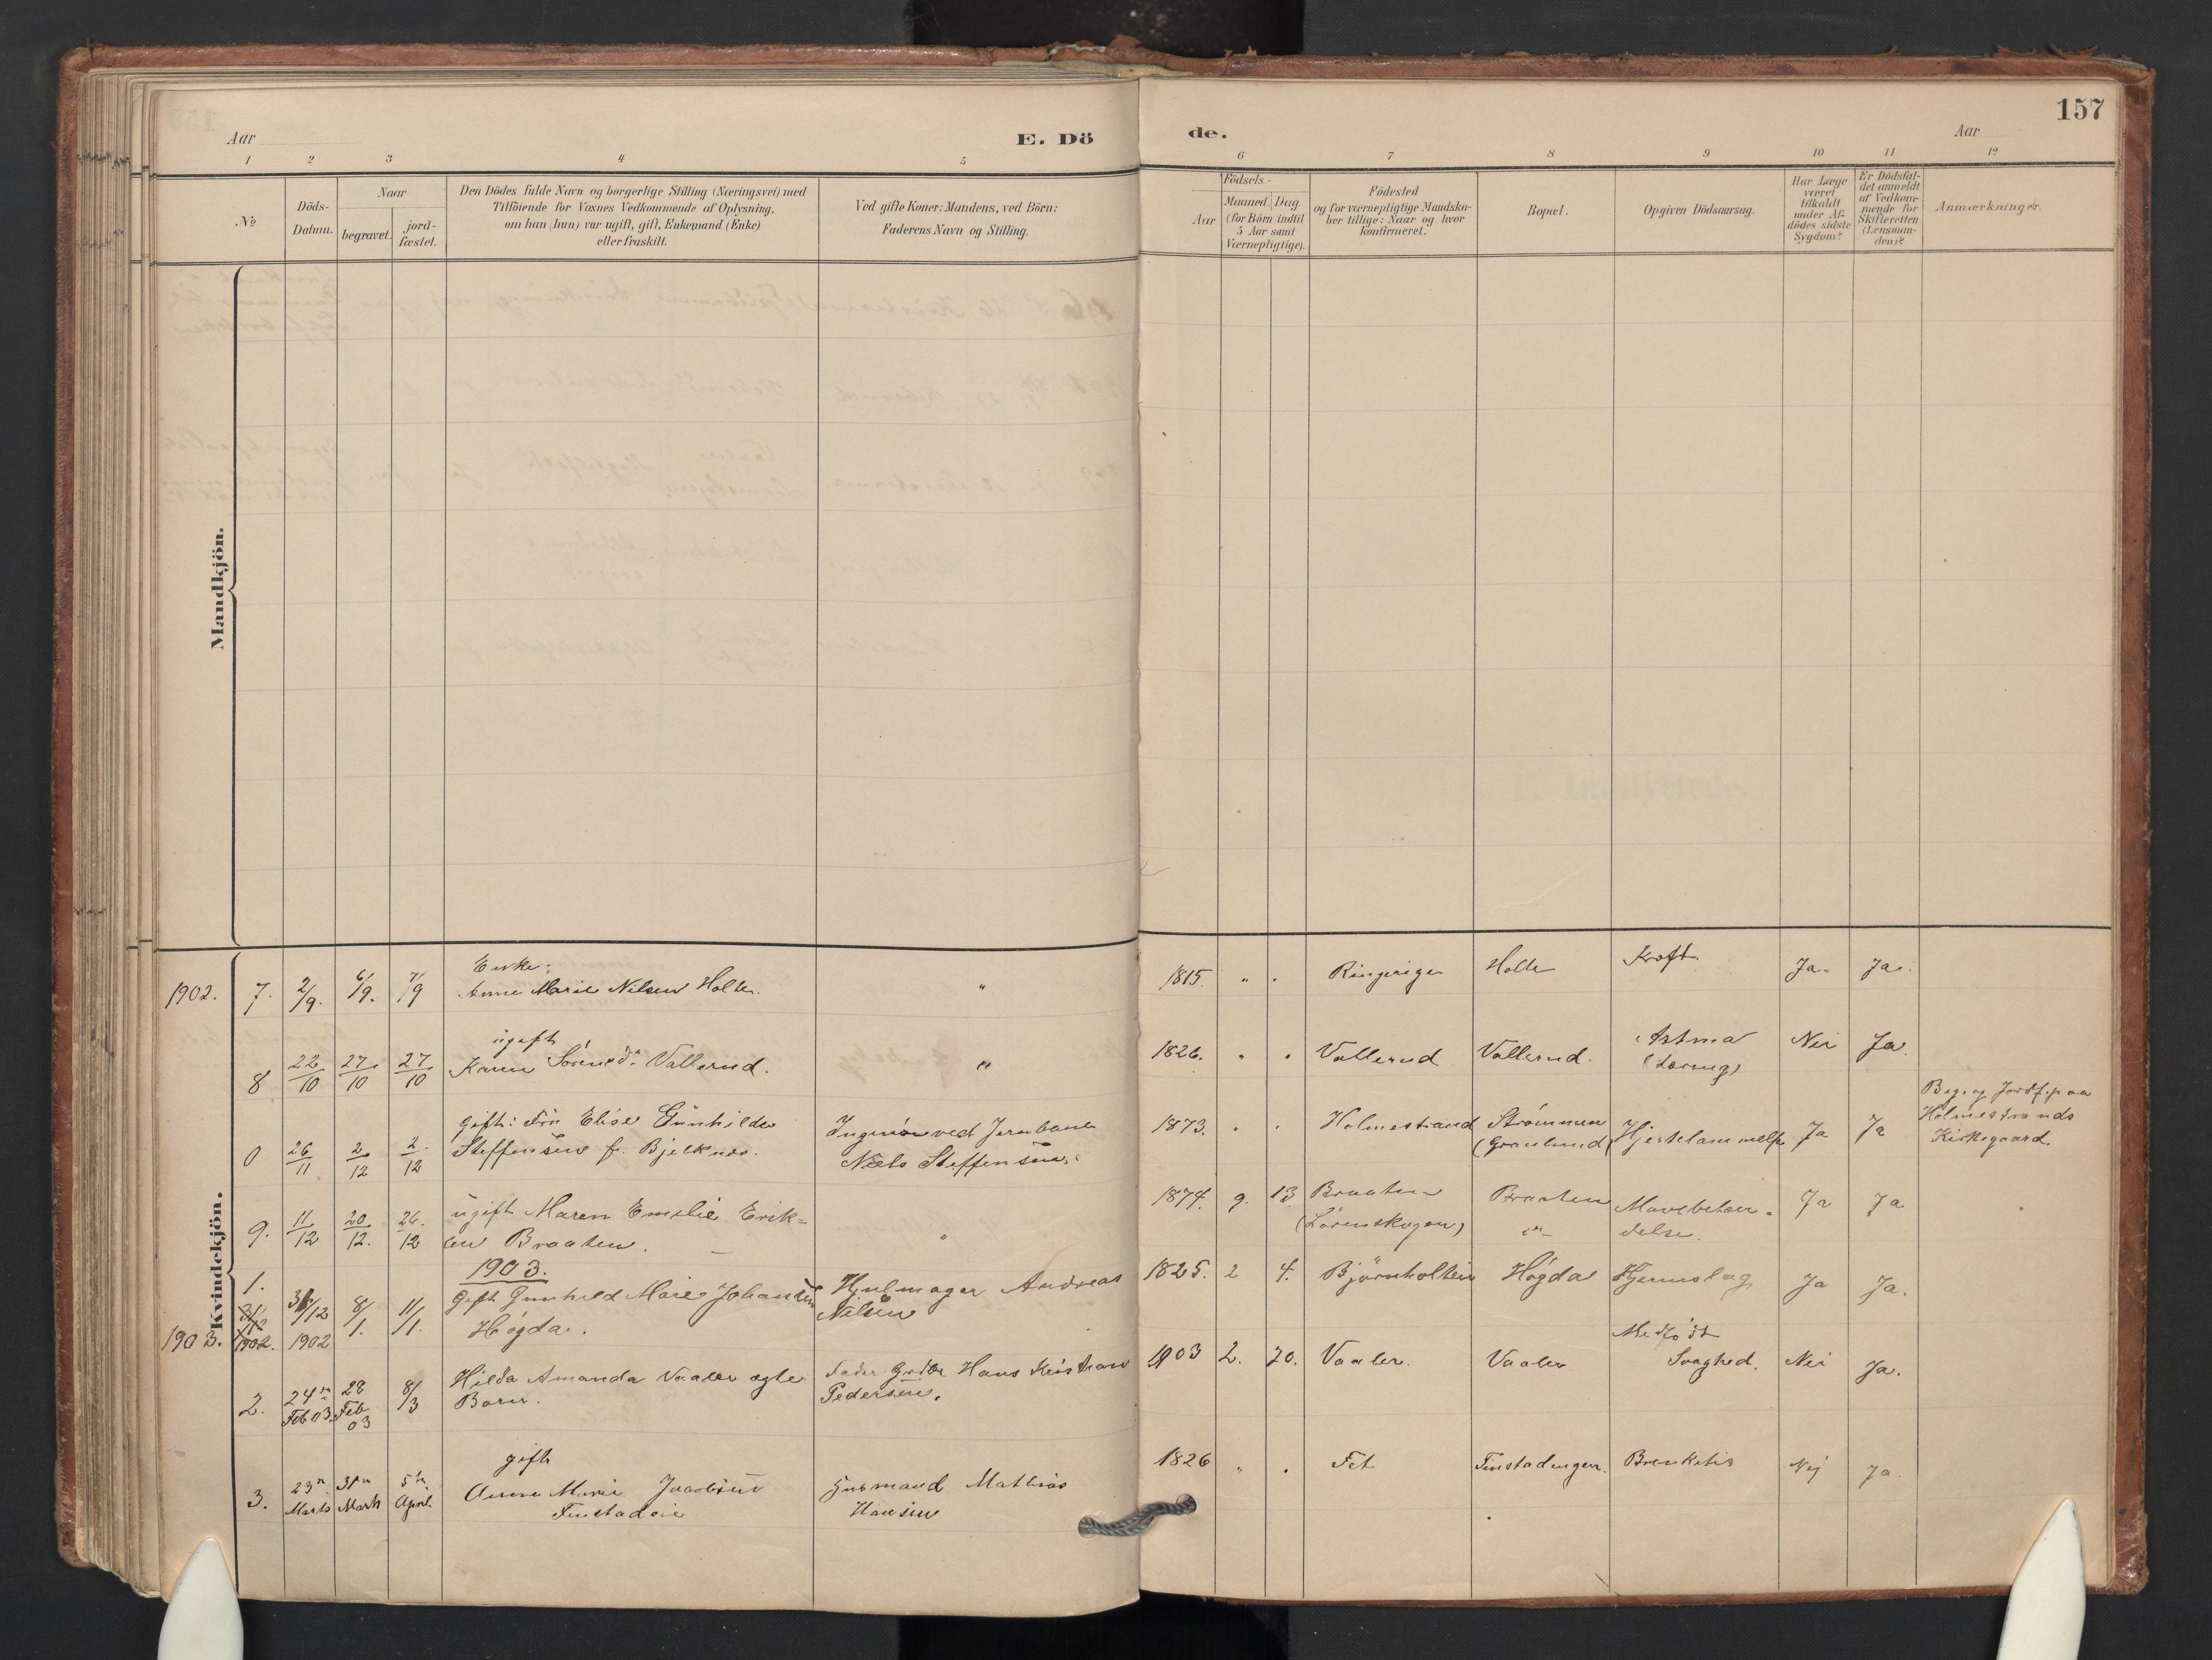 157
Aar
E. Dö
de.
Aar
1 2 3 4 5 6 7 8 9 10 11 12
No
Döds-
Datum.
Naar
begravet.
jord-
fæstet.
Den Dödes fulde Navn og borgerlige Stilling (Næringsvei) med
Tilföiende for Voxnes Vedkommende af Oplysning,
om han (hun) var ugift, gift, Enkemand (Enke)
eller fraskilt.
Ved gifte Koner: Mandens, ved Börn:
Faderens Navn og Stilling.
Födsels-
Aar
Maaned. Dag
(for Börn indtil
5 Aar samt
Værnepligtige).
Födested
og for værnepligtige Mandska-
ber tillige: Naar og hvor
konfirmeret.
Bopæl.
Opgiven Dödsaarsag.
Har Læge
været
tilkaldt
under Af-
dödes sidste
Sygdom?
Er Dödsfal-
det anmeldt
af Vedkom-
mende for
Skifteretten
(Lensman-
den)?
Anmærkninger.
Mandkjön.
Kvindekjön.
1902. 7. 2/9. 6/9. 7/9
Enke:
Anne Marie Nilsen Holte. "
1815. " . Ringerige Holte Kræft Ja. Ja.
8 22/10 27/10 27/10
ugift
Karen Sörensd. Vallerud. "
1826. " " Vallerud Vallerud. Astma Nei Ja.
0 26/11 2/12 2/12
gift: Fru Elise Gunhilde
Steffensen f. Bjelknes.
Ingeniör ved Jernbane
Niels Steffensen.
1873. " " Holmestrand Strömmen
(Granlund) Hjertelammelse Ja Ja
Beg. og Jordf. paa
Holmestrands
Kirkegaard.
9. 11/12 20/12. 26/12
ugift Maren Emilie Erik-
sen Braaten. "
1874. 9. 13 Braaten
(Lörenskogen) Braaten
Mavebetæn-
delse. Ja Ja
1903.
1903. 1. 31/12 1902. 31/12 1902 8/1. 11/1.
Gift Gunhild Marie Johansen
Högda.
Hjulmager Andreas
Nilsen
1825. 2 4. Björnholten Högda Hjerneslag Ja Ja.
2. 24de Feb 03. 28 Feb 03 8/3
Hilda Amanda Vaaler ægte
Barn.
Fader Gbr. Hans Kristian
Pedersen.
1903 2. 20. Vaaler. Vaaler Medfödt
Svaghed. Nei Ja.
3. 23de Marts 31te Marts 5te April.
gift
Anna Marie Jacobsen
Finstadeie
Husmand Mathias
Hansen
1826 " . Fet Finstadengen. Bronkitis Nej Ja